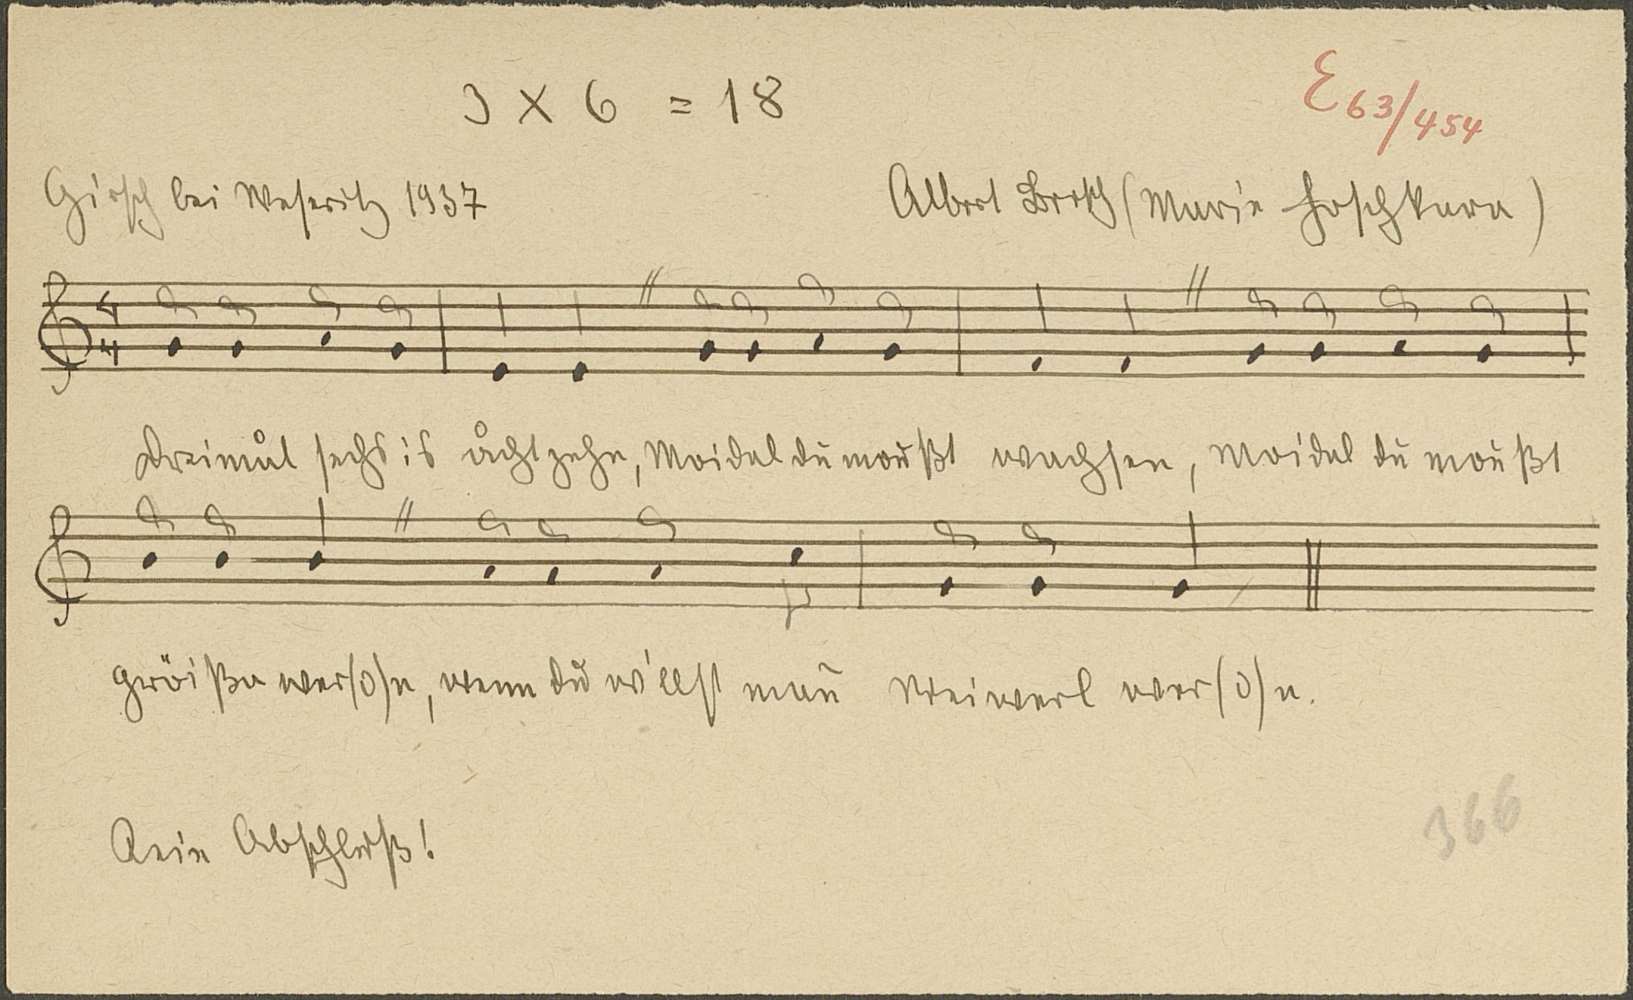 3 X 6 = 18
E 63/454
Girsch bei Weseritz 1937
Albert Brosch (Marie Hoschkara)
4
4
Dreimål sechs is åchtzehn, Moidal du moußt wachsen, Moidal du moußt
gröißa wer(d)n, wenn du willst mau Weiwerl wer(d)n.
Kein Abschluß!
366